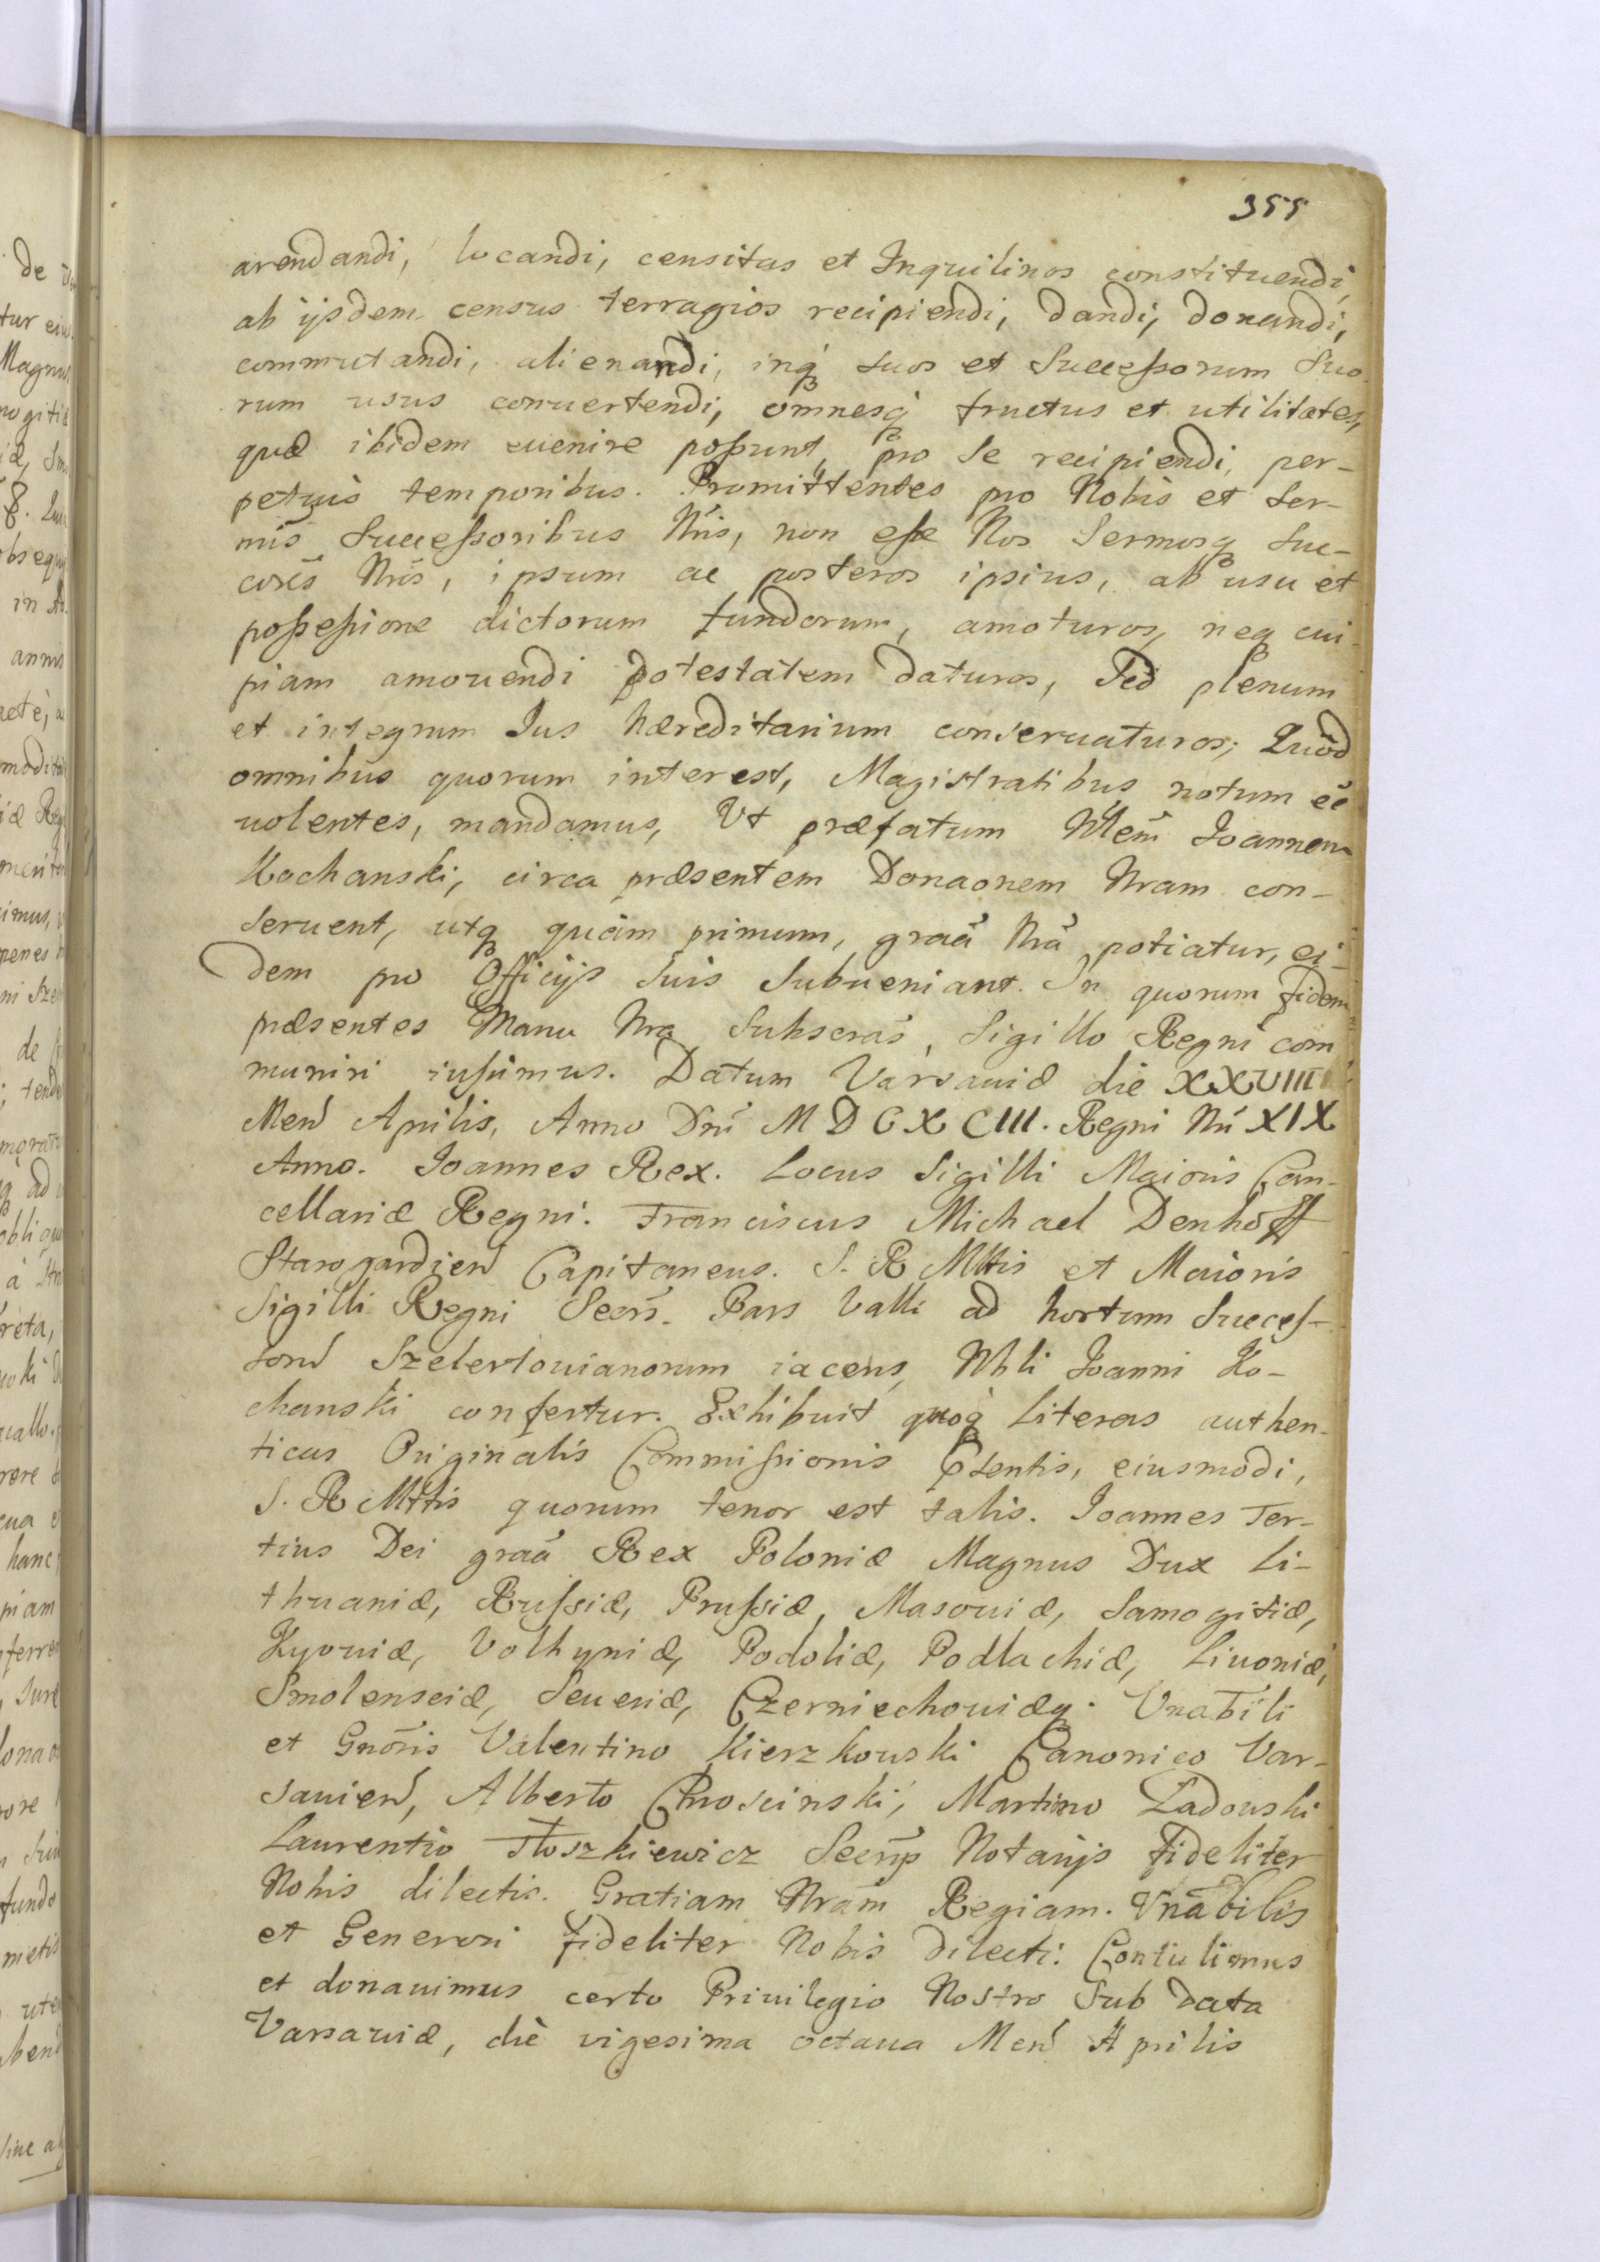 355
arendandi, locandi, censitas et Inquilinos constituendi,
ab ijsdem census terragios recipiendi, dandi, donandi,
commutandi, alienandi, inq́ suos et Successorum Suo
rum usus conuertendi, omnesq́ fructus et utilitates,
quæ ibidem euenire possunt, pro se recipiendi, per-
petuis temporibus. Promittentes pro Nobis et Ser-
mis Successoribus Nris, non esse Nos Sermosq Suc-
cores Nros, ipsum ac posteros ipsius, ab usu et
possessione dictorum fundorum, amoturos, neq cui-
piam amouendi potestatem daturos, Sed plenum
et integrum Ius hæreditarium conseruaturos; Quòd
omnibus quorum interest, Magistratibus notum eé
uolentes, mandamus, Vt præfatum Nblem Joannem
Kochanski, circa præsentem Donaonem Nram con-
seruent, utq quàm primum, graã Nrã potiatur, ei-
dem pro Officijs suis Subueniant. In quorum fidem
præsentes Manu Nra Subscras, Sigillo Regni com
muniri iussimus. Datum Varsauiæ die XXVIII
Mens Aprilis, Anno Dni M D C X C III. Regni Nri XIX
Anno. Joannes Rex. Locus Sigilli Maioris Can-
cellariæ Regni. Franciscus Michael Denhoff
Starogardien Capitaneus. S. R Mttis et Maioris
Sigilli Regni Secrs. Pars Valli ad hortum Succes-
sorum Szelertouianorum iacens, Nbli Joanni Ko-
chanski confertur. Exhibuit quoq́ Literas authen-
ticas Originalis Commissionis eiusmodi,
S. R Mttis quorum tenor est talis. Joannes Ter-
tius Dei graã Rex Poloniæ Magnus Dux Li-
thuaniæ, Russiæ, Prussiæ, Masouiæ, Samogitiæ,
Kyouiæ, Volhyniæ, Podoliæ, Podlachiæ, Liuoniæ,
Smolensciæ, Seueriæ, Czerniechouiæq. Vnabili
et Gnõris Valentino Kierzkouski Canonico Var-
sauien, Alberto Chroscinski, Martino Ladouski
Laurentio Tłoszkiewicz Secrijs Notarijs fideliter
Nobis dilectis. Gratiam Nram Regiam. Vnabilis
et Generosi fideliter Nobis dilecti. Contulimus
et donauimus certo Priuilegio Nostro Sub data
Varsauiæ, die vigesima octaua Mens Aprilis